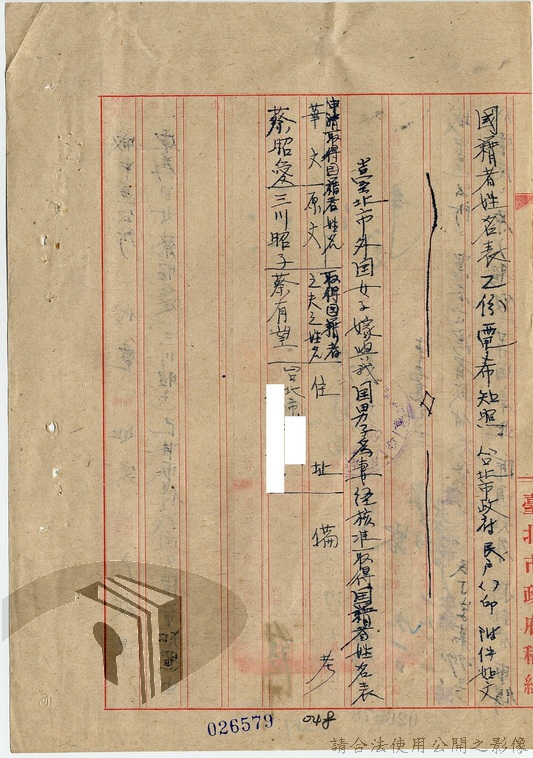 國籍者姓名表乙份電希知照 台北市政府民戶 印 附件如文
臺北市外囯女子嫁與我囯男子為妻経核准取得囯籍者姓名表
申請取得囯籍者姓名
華文 原文
取得囯籍者之夫之姓名
住址
備考
蔡昭愛
三川昭子
蔡有望
台北市
臺北市政府稿紙
026579
048
請合法使用公開之影像